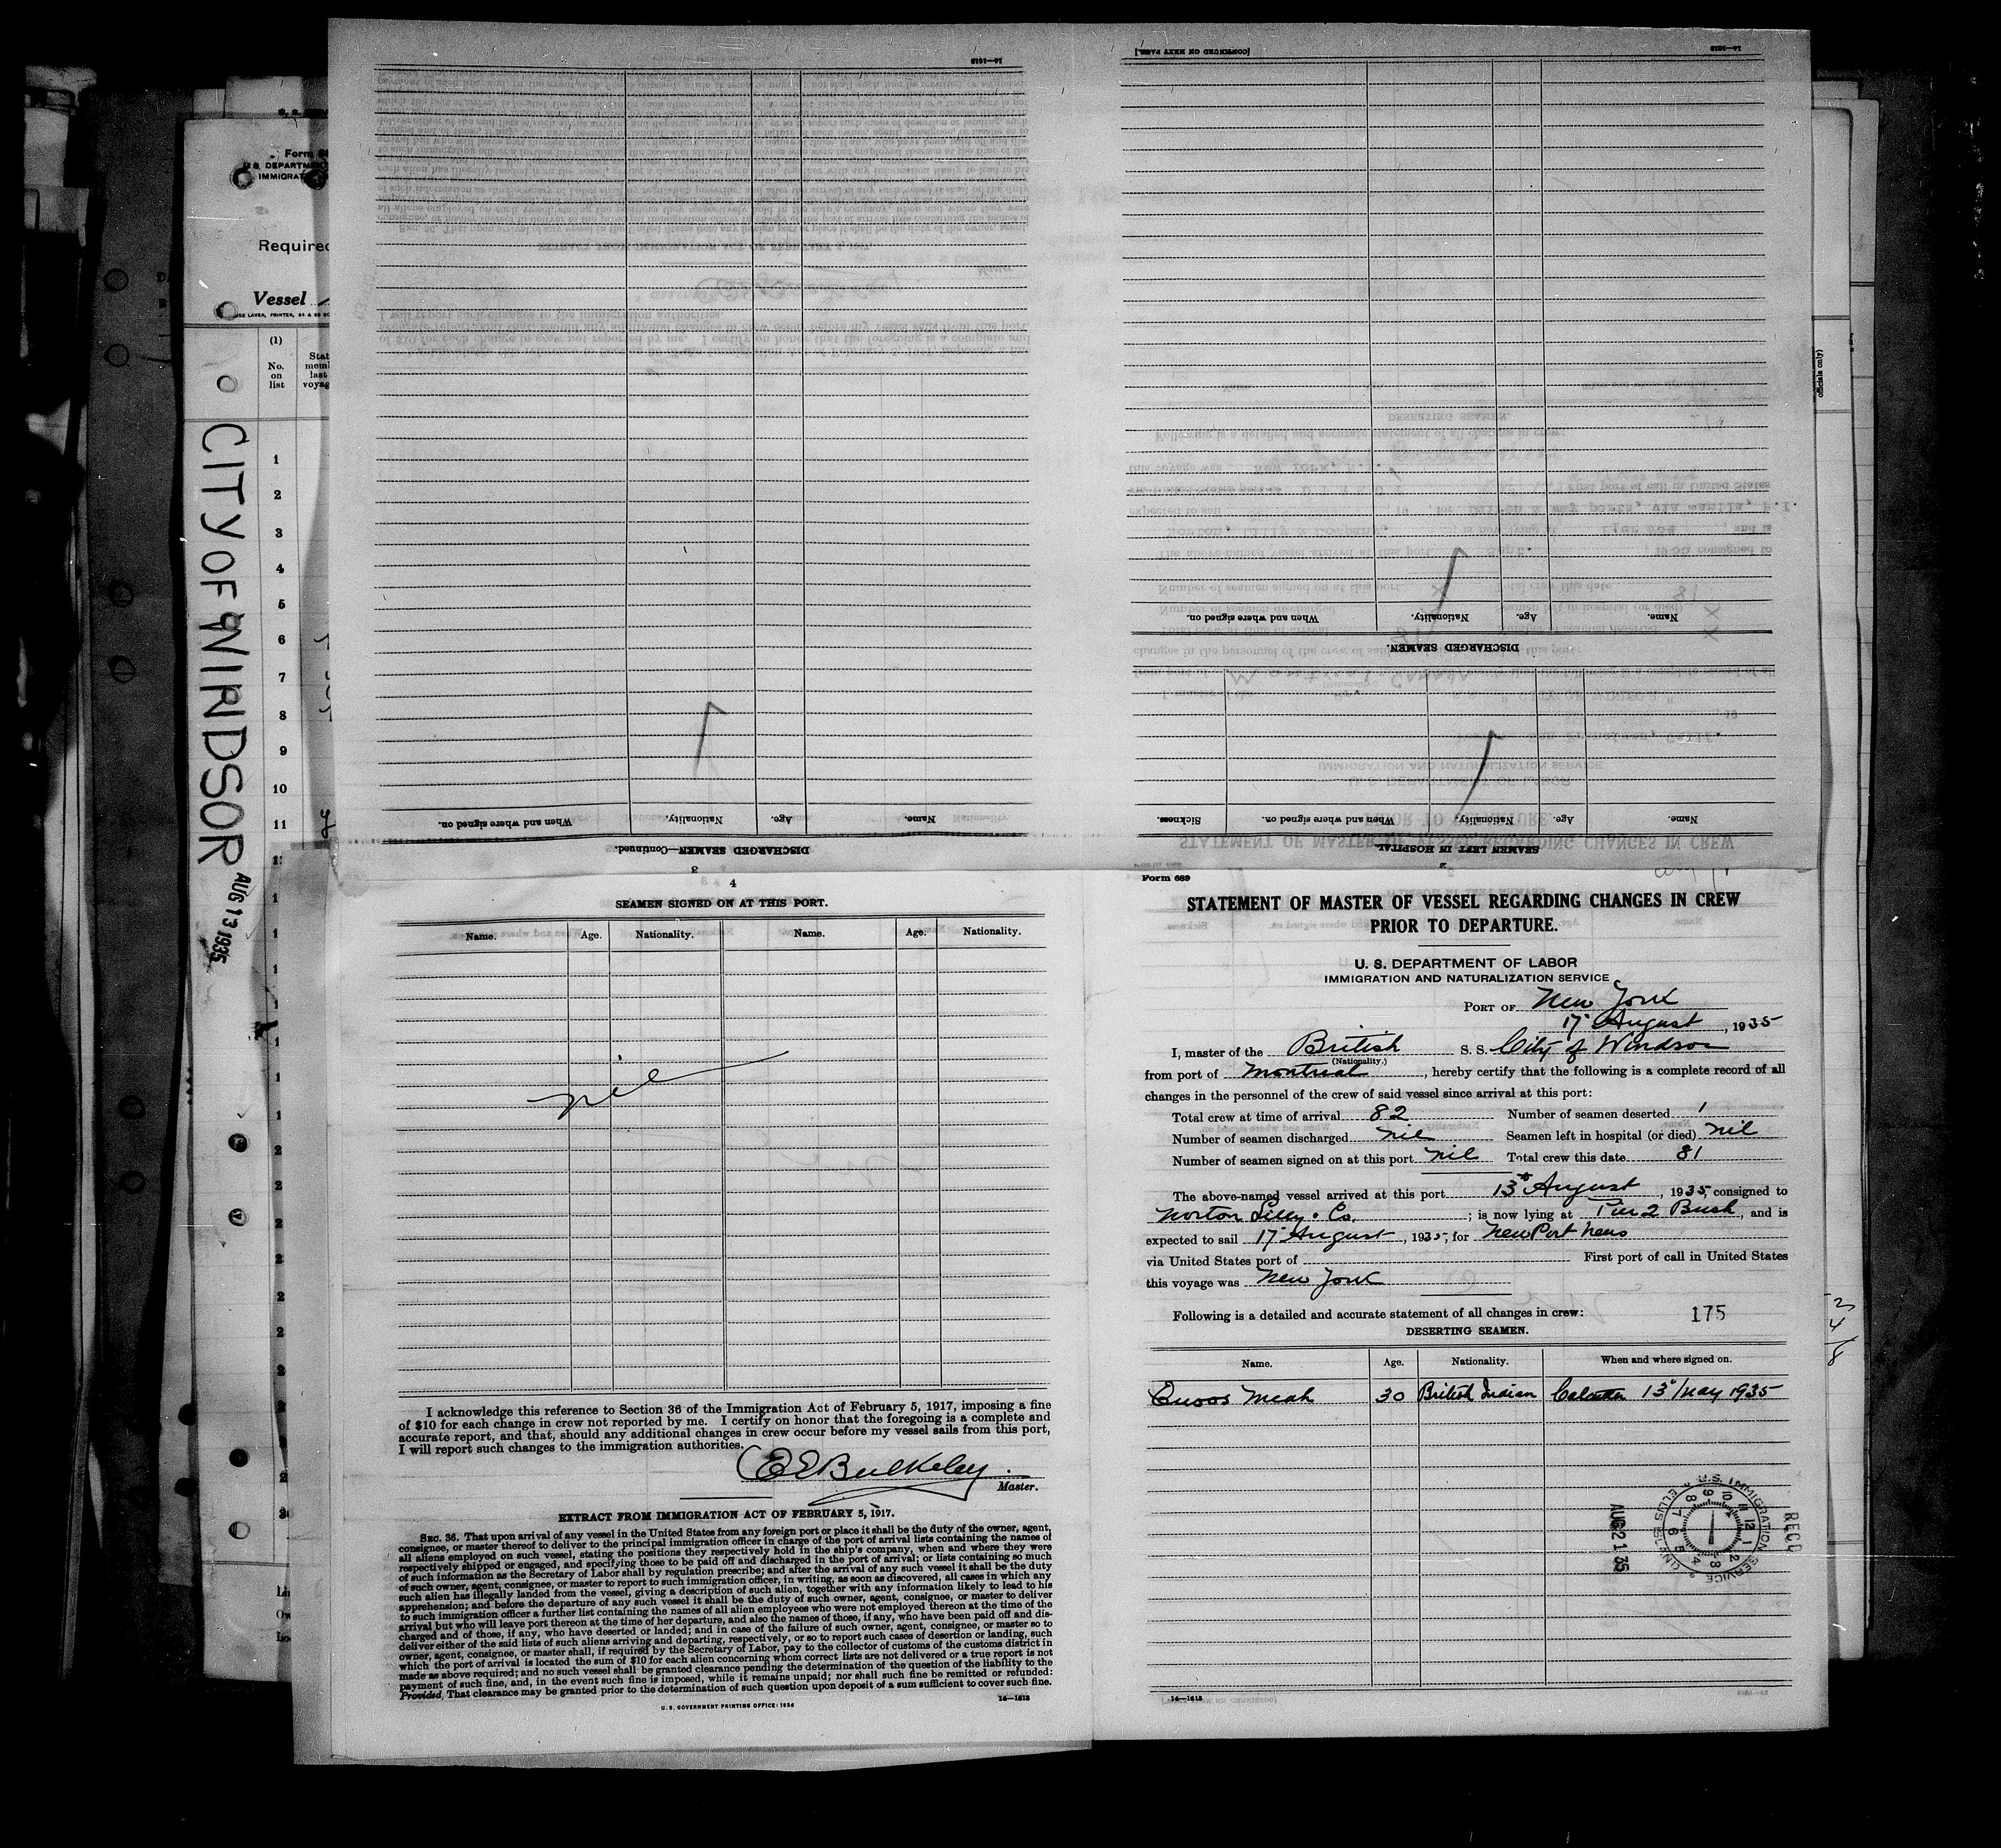 Form 689
STATEMENT OF MASTER OF VESSEL REGARDING CHANGES IN CREW
PRIOR TO DEPARTURE.
U. S. DEPARTMENT OF LABOR
IMMIGRATION AND NATURALIZATION SERVICE
PORT OF New York
17" August, 1935
I, master of the British S. S. City of Windsor
(Nationality.)
from port of Montreal, hereby certify that the following is a complete record of all
changes in the personnel of the crew of said vessel since arrival at this port:
Total crew at time of arrival 82 Number of seamen deserted 1
Number of seamen discharged nil Seamen left in hospital (or died) nil
Number of seamen signed on at this port nil Total crew this date 81
The above-named vessel arrived at this port 13th August, 1935, consigned to
Norton Lilly & Co.; is now lying at Pier 2 Bush, and is
expected to sail 17" August, 1935, for NewPort News
via United States port of First port of call in United States
this voyage was New York
Following is a detailed and accurate statement of all changes in crew: 175
DESERTING SEAMEN.
Name. Age. Nationality. When and where signed on.
Meah 30 British Indian Calcutta 13" May 1935
RECD
U.S. IMMIGRATION SERVICE ELLIS ISLAND
AUG 21 35
14—1613
4
SEAMEN SIGNED ON AT THIS PORT.
Name. Age. Nationality. Name. Age. Nationality.
nil
I acknowledge this reference to Section 36 of the Immigration Act of February 5, 1917, imposing a fine
of $10 for each change in crew not reported by me. I certify on honor that the foregoing is a complete and
accurate report, and that, should any additional changes in crew occur before my vessel sails from this port,
I will report such changes to the immigration authorities.
E E Bulkeley
Master.
EXTRACT FROM IMMIGRATION ACT OF FEBRUARY 5, 1917.
SEC. 36. That upon arrival of any vessel in the United States from any foreign port or place it shall be the duty of the owner, agent,
consignee, or master thereof to deliver to the principal immigration officer in charge of the port of arrival lists containing the names of
all aliens employed on such vessel, stating the positions they respectively hold in the ship's company, when and where they were
respectively shipped or engaged, and specifying those to be paid off and discharged in the port of arrival; or lists containing so much
of such information as the Secretary of Labor shall by regulation prescribe; and after the arrival of any such vessel it shall be the duty
of such owner, agent, consignee, or master to report to such immigration officer, in writing, as soon as discovered, all cases in which any
such alien has illegally landed from the vessel, giving a description of such alien, together with any information likely to lead to his
apprehension; and before the departure of any such vessel it shall be the duty of such owner, agent, consignee, or master to deliver
to such immigration officer a further list containing the names of all alien employees who were not employed thereon at the time of the
arrival but who will leave port thereon at the time of her departure, and also the names of those, if any, who have been paid off and dis-
charged and of those, if any, who have deserted or landed; and in case of the failure of such owner, agent, consignee, or master so to
deliver either of the said lists of such aliens arriving and departing, respectively, or so to report such cases of desertion or landing, such
owner, agent, consignee, or master shall, if required by the Secretary of Labor, pay to the collector of customs of the customs district in
which the port of arrival is located the sum of $10 for each alien concerning whom correct lists are not delivered or a true report is not
made as above required; and no such vessel shall be granted clearance pending the determination of the question of the liability to the
payment of such fine, and, in the event such fine is imposed, while it remains unpaid; nor shall such fine be remitted or refunded:
Provided, That clearance may be granted prior to the determination of such question upon deposit of a sum sufficient to cover such fine.
U. S. GOVERNMENT PRINTING OFFICE: 1934
14—1613
2
SEAMEN LEFT IN HOSPITAL.
Name. Age. Nationality. When and where signed on. Sickness.
DISCHARGED SEAMEN.
Name. Age. Nationality. When and where signed on.
14—1613
[CONTINUED ON NEXT PAGE.]
3
DISCHARGED SEAMEN—Continued.
Name. Age. Nationality. When and where signed on.
14—1613
CITY OF WINDSOR
AUG 13 1935
Required
Vessel
(1)
No.
on
list
1
2
3
4
5
6
7
8
9
10
11
officials only)